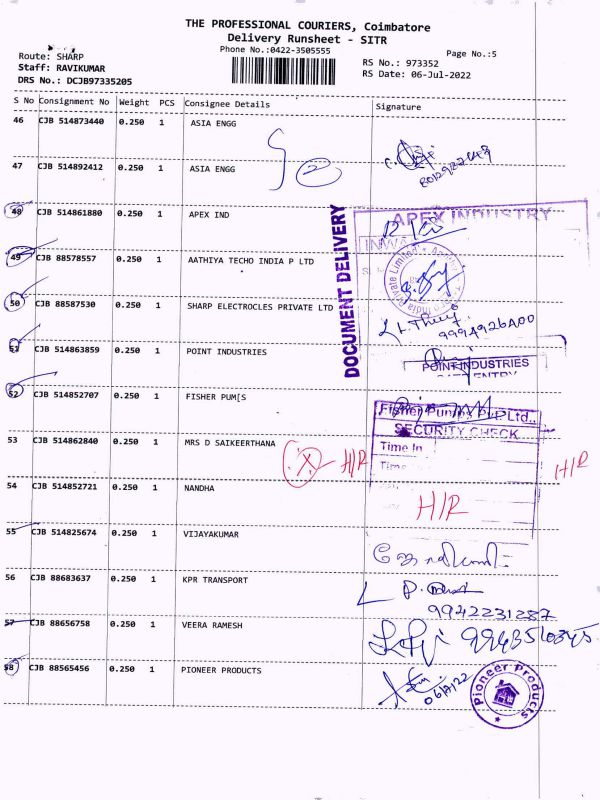 THE PROFESSIONAL COURIERS, Coimbatore
Delivery Runsheet - SITR
Phone No.:0422-3505555
Page No.:5
Route: SHARP
Staff: RAVIKUMAR
DRS No.: DCJB97335205
RS No.: 973352
RS Date: 06-Jul-2022
S No Consignment No Weight PCS Consignee Details Signature
46 CJB 514873440 0.250 1 ASIA ENGG
47 CJB 514892412 0.250 1 ASIA ENGG
48 CJB 514861880 0.250 1 APEX IND
APEX INDUSTRY
DOCUMENT DELIVERY
49 CJB 88578557 0.250 1 AATHIYA TECHO INDIA P LTD
50 CJB 88587530 0.250 1 SHARP ELECTROCLES PRIVATE LTD
9994926A00
51 CJB 514863859 0.250 1 POINT INDUSTRIES
POINT INDUSTRIES
52 CJB 514852707 0.250 1 FISHER PUM[S
Fisher Pumps Pvt Ltd.,
SECURITY CHECK
Time In
53 CJB 514862840 0.250 1 MRS D SAIKEERTHANA
X H/R
H/R
54 CJB 514852721 0.250 1 NANDHA
H/R
55 CJB 514825674 0.250 1 VIJAYAKUMAR
56 CJB 88683637 0.250 1 KPR TRANSPORT
9942231287
57 CJB 88656758 0.250 1 VEERA RAMESH
9943510345
58 CJB 88565456 0.250 1 PIONEER PRODUCTS
Pioneer Products